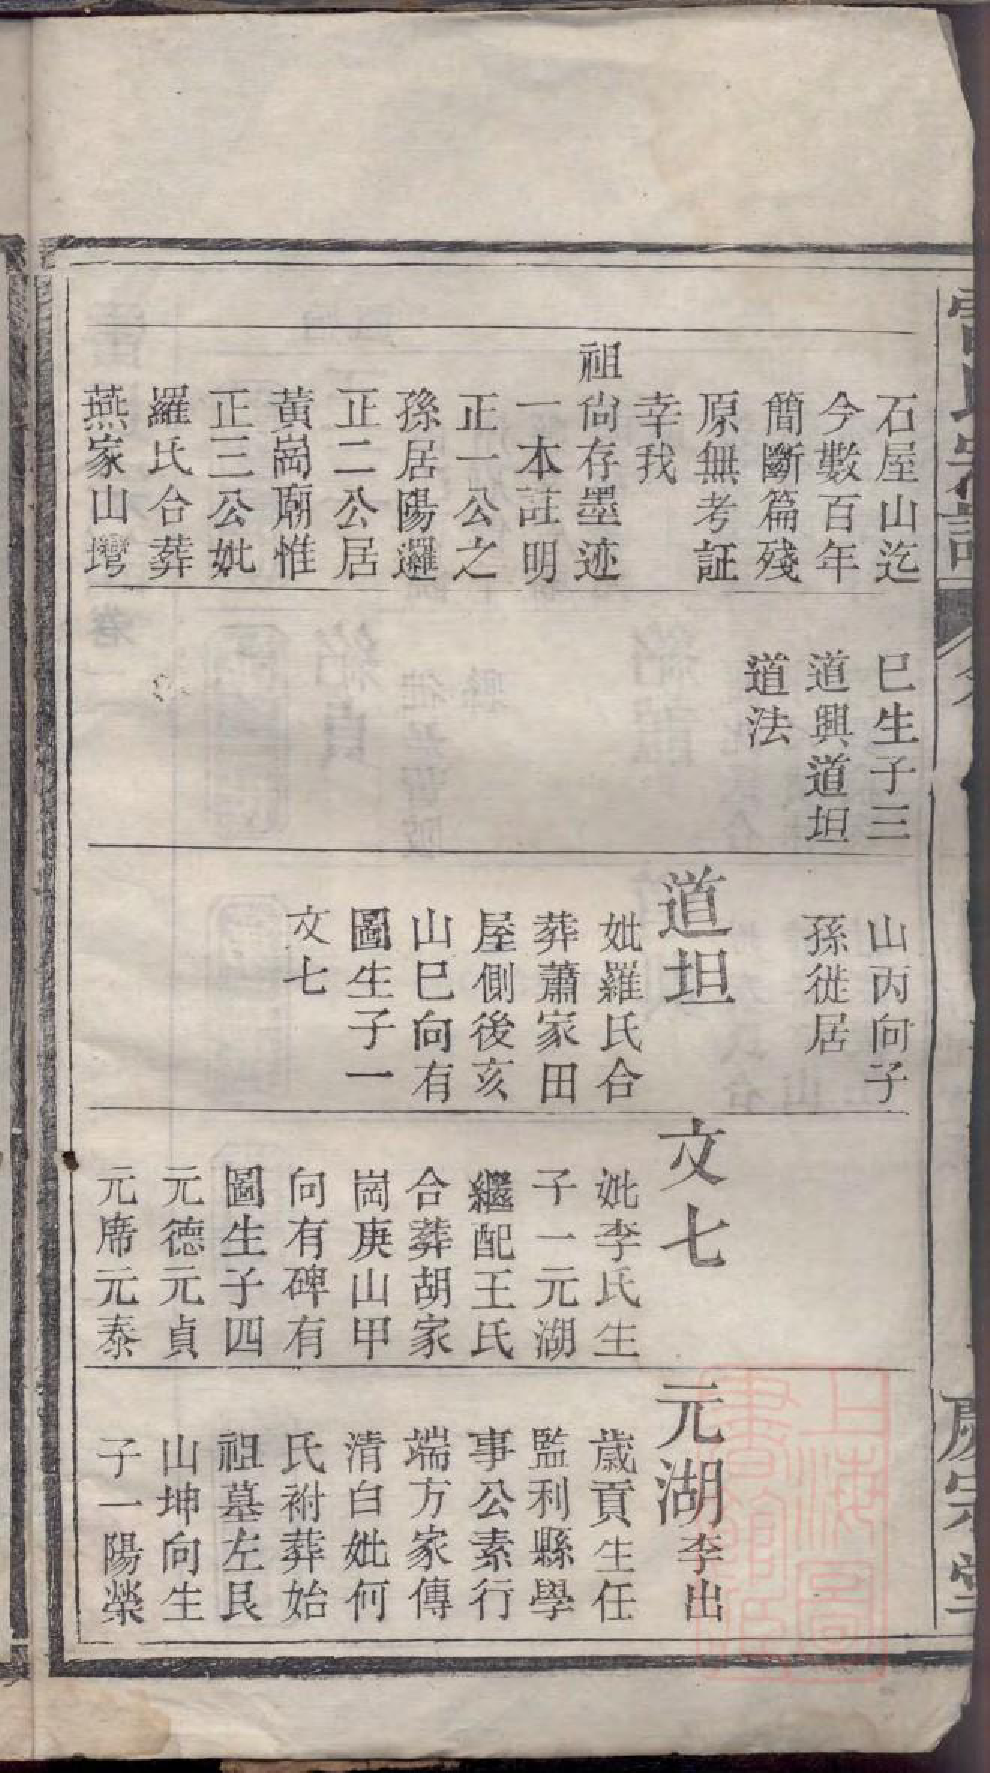 石屋山迄
今數百年
簡斷篇殘
原無考証
幸我
祖尙存墨迹
一本註明
正一公之
孫居陽邏
正二公居
黃崗廟惟
正三公妣
羅氏合葬
燕家山塆
巳生子三
道興道坦
道法
山丙向子
孫徙居
道坦
妣羅氏合
葬蕭家田
屋側後亥
山巳向有
圖生子一
文七
文七
妣李氏生
子一元湖
繼配王氏
合葬胡家
崗庚山甲
向有碑有
圖生子四
元德元貞
元席元泰
元湖李出
歲貢生任
監利縣學
事公素行
端方家傳
清白妣何
氏祔葬始
祖墓左艮
山坤向生
子一陽榮
上海圖
書館藏